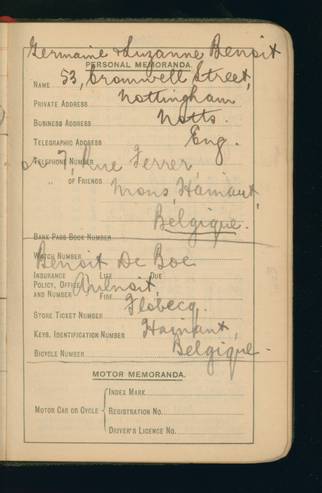 Germaine & Suzanne Benoit
PERSONAL MEMORANDA.
53, Cromwell Street,
NAME
Nottingham
PRIVATE ADDRESS
Notts.
BUSINESS ADDRESS
Eng.
TELEGRAPHIC ADDRESS
TELEPHONE NUMBER
7, Rue Ferrer,
" OF FRIENDS
Mons, Hainaut,
Belgique.
BANK PASS BOOK NUMBER
WATCH NUMBER
Benoit De Boe
INSURANCE POLICY, OFFICE AND NUMBER
LIFE DUE
FIRE
Flobecq,
STORE TICKET NUMBER
Hainaut,
KEYS, IDENTIFICATION NUMBER
Belgique.
BICYCLE NUMBER
MOTOR MEMORANDA.
INDEX MARK
MOTOR CAR OR CYCLE
REGISTRATION NO.
DRIVER'S LICENCE NO.